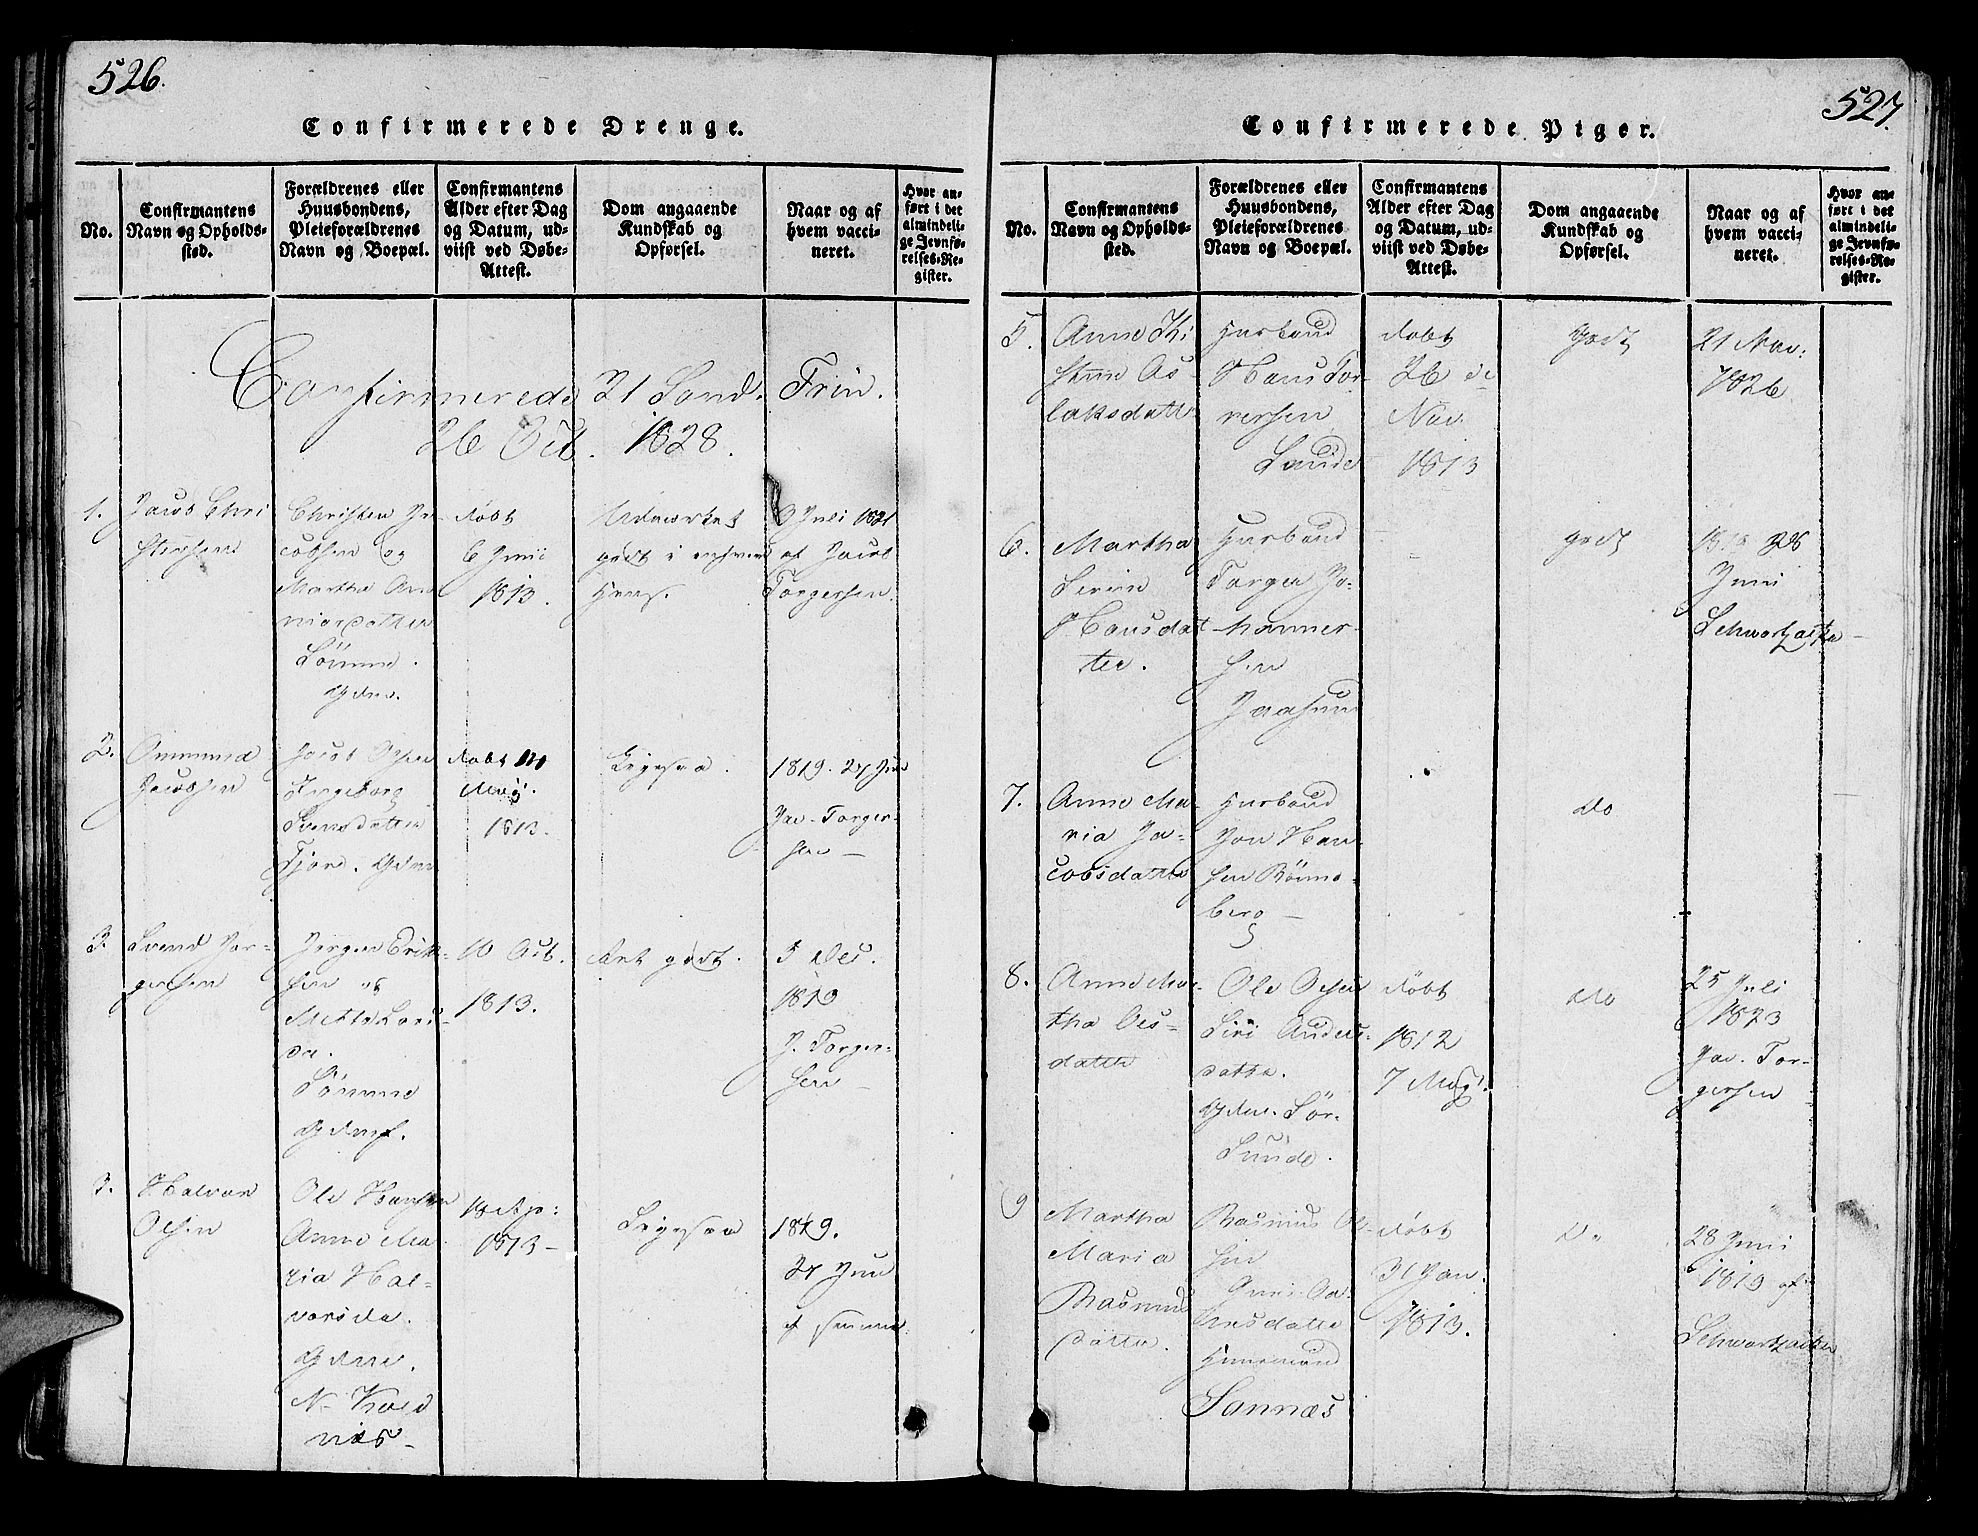 526.
Confirmerede Drenge.
No.
Confirmantens
Navn og Opholds-
sted.
Forældrenes eller
Huusbondens,
Pleieforældrenes
Navn og Boepæl.
Confirmantens
Alder efter Dag
og Datum, ud-
viist ved Døbe-
Attest.
Dom angaaende
Kundskab og
Opførsel.
Naar og af
hvem vacci-
neret.
Hvor an-
ført i det
almindeli-
ge Jevnfø-
relses-Re-
gister.
Confirmerede 21 Sønd. Trin.
26 Oct. 1828.
1.
Jacob Chri
stensen
Christen Ja-
cobsen og
Martha
Sömme
døbt
6 Junii
1813.
Udmærket
godt i enhver
Hens.
9 Juli 1821
af Jacob
Torgersen.
2.
Ommund
Jacobsen
Jacob Olsen
Ingeborg
Svensdatter
Tjora. Gdm
døbt
May.
1813.
Ligesaa.
1819. 27 Jun
Jac. Torger-
sen –
3.
Svend Jør-
gensen
Jørgen Erik-
sen og
Mette Lars-
da.
Sömme
10 Oct.
1813.
Ret godt.
5 Dec.
1819
J. Torger-
sen –
3.
Halvor
Olsen
Ole Hansen
Anne Ma
ria Hal-
vorsda.
18 Ap:
1813 –
Ligesaa
1819.
27 Jun
af samme
527.
Confirmerede Piger.
No.
Confirmantens
Navn og Opholds-
sted.
Forældrenes eller
Huusbondens,
Pleieforældrenes
Navn og Boepæl.
Confirmantens
Alder efter Dag
og Datum, ud-
viist ved Døbe-
Attest.
Dom angaaende
Kundskab og
Opførsel.
Naar og af
hvem vacci-
neret.
Hvor an-
ført i det
almindeli-
ge Jevnfø-
relses-Re-
gister.
5.
Anne Ki
stine As-
laksdatt
Husbond
Hans Tor-
Sunde
døbt
26 de
Nov.
1813
Godt
21 Nov.
1826
6.
Martha
Serine
Hansdat
ter.
Husbond
Torger Jo-
hannes-
sen
Jaasund
godt
Juni
Schwartzacke
7.
Anne Ma-
ria Ja-
cobsdatte
Husbond
Jon Han-
sen Rönne-
berg –
do
8.
Anne Mar-
tha Ols-
datte
Ole Olsen
Siri Anders-
datte.
Gdm. Sör-
Sunde.
døbt
1812
7 May.
do
25 Juli
1823
Jac. Tor-
gersen
9
Martha
Maria
Rasmus
datte.
Rasmus Ol-
sen
Huusmand
Sannæs
døbt
31 Jan.
1813.
Do
28 Juni
1819 af
Schwartzacker